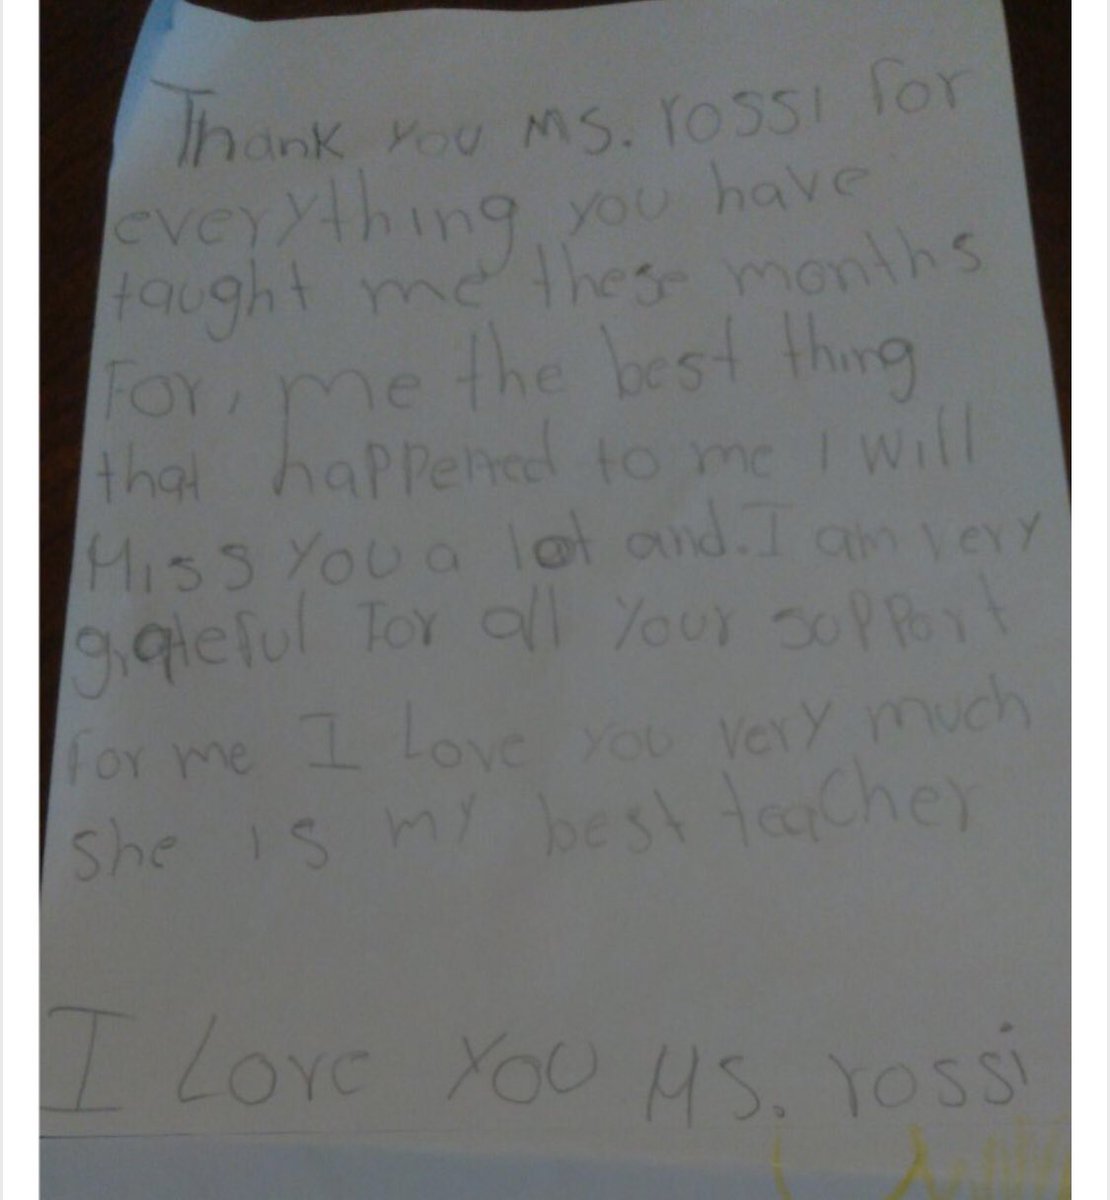 Thank you Ms. rossi for
everything you have
taught me these months
For, me the best thing
that happened to me I will
Miss you a lot and. I am very
grateful For all your support
for me I Love you very much
she is my best teacher
I Love you Ms. rossi